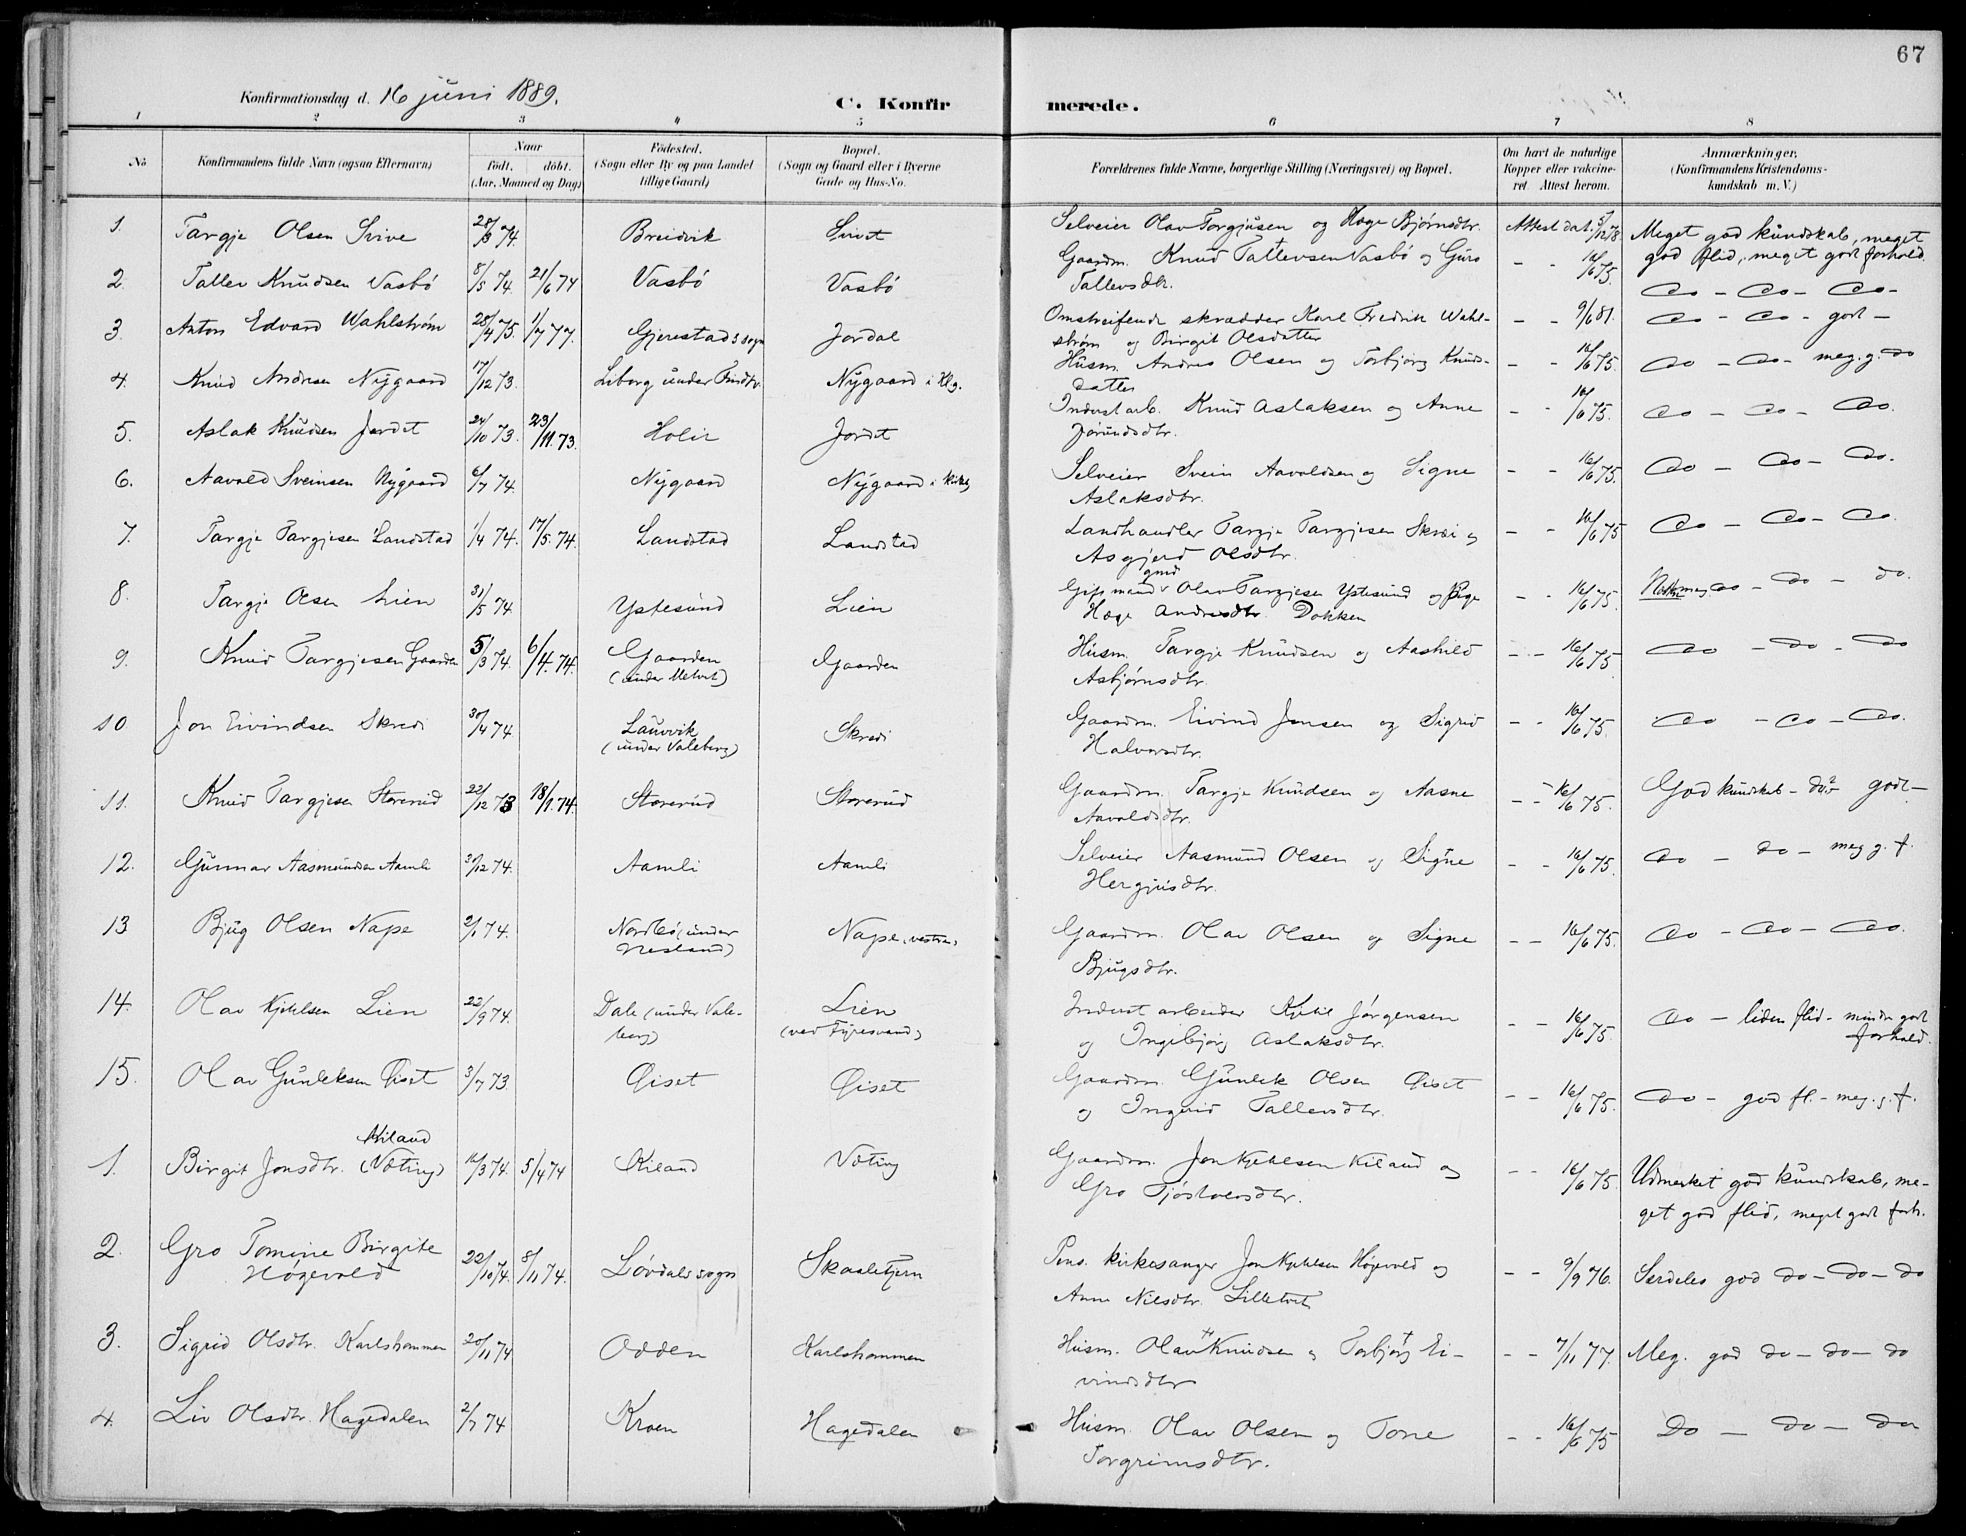 67
Konfirmationsdag d. 16 juni 1889.
C. Konfirmerede.
1 2 3 4 5 6 7 8
No Konfirmandens fulde Navn (ogsaa Efternavn) Naar født. døbt. (Aar, Maaned og Dag) Fødested. (Sogn eller By og paa Landet tillige Gaard) Bopæl. (Sogn og Gaard eller i Byerne Gade og Hus-No. Forældrenes fulde Navne, borgerlige Stilling (Næringsvei) og Bopæl. Om havt de naturlige Kopper eller vakcineret. Attest herom. Anmærkninger, (Konfirmandens Kristendomskundskab m. V.)
1. Targje Olsen 28/3 74. Breidvik Selveier Olav Torgjusen og Hæge Bjørnsdtr. Attest dat. Meget god kundskab, meget god flid, meget godt forhold.
2. Tallev Knudsen Vasbö 8/5 74. 21/6 74 Vasbö Vasbö Gaardm. Knud Tallevsen Vasbö og Guro Tallevsdtr. - - 16/6 75. do - do - do -
3. Anton Edvard Wahlstrøm 28/4 75. 1/7 77. Gjerestads sogn Jordal Omstreifende skrædder Karl Fredrik Wahlstrøm og Birgit Olsdatter - - 9/6 81. do - do - godt -
4. Knud Andresen Nygaard 17/12 73. Nygaard i Husm. Andres Olsen og Torbjørg Knudsdatter - - 16/6 75. do - do - meg. g. do
5. Aslak Knudsen Jordet 24/10 73. 23/11 73. Holir Jordet Indust arb. Knud Aslaksen og Anne Jørundsdtr. - - 16/6 75. do - do - do.
6. Aavold Sveinsen Nygaard 6/7 74. Nygaard Nygaard i Selveier Svein Aavoldsen og Signe Aslaksdtr. - - 16/6 75. do - do - do.
7. Targje Targjesen Landstad 1/4 74. 17/5 74. Landstad Landstad Landhandler Targje Targjesen Skræi og Asgjerd Olsdtr. - - 16/6 75 do - do - do.
8. Targje Olsen Lien 31/5 74 Ystesund Lien Gift mand Olav Targjesen Ystesund og Pige Hæge Andresdtr. Dokken - - 16/6 75. do - do - do.
9. Knud Targjesen Gaarden 5/3 74. 6/4 74. Gaarden (under Metvet) Gaarden Husm. Targje Knudsen og Aashild Asbjørnsdtr. - - 16/6 75 do - do - do
10 Jon Eivindsen Skrædi 30/4 74 Lauvvik (under Valeberg) Skrædi Gaardm. Eivind Jonsen og Sigrid Halvorsdtr. - - 16/6 75. do - do - do.
11. Knud Targjesen Storerud 22/12 73 18/1 74. Storerud Storerud Gaardm. Targje Knudsen og Aasne Aavoldsdtr. - - 16/6 75. God kundskab - do - godt -
12. Gunnar Aasmundsen Aamli 30/12 74. Aamli Aamli Selveier Aasmund Olsen og Signe Hergjusdtr. - - 16/6 75. do - do - meg g. f.
13 Bjug Olsen Nape 2/1 74. Nordbö (under Nesland) Nape (vestre) Gaardm. Olav Olsen og Signe Bjugsdtr. - - 16/6 75. do - do - do.
14. Olav Kjetilsen Lien 22/9 74. Dale (under Valeberg) Lien (ved Fyresvand) Indust arbeider Kjetil Jørgensen og Ingebjørg Aslaksdtr. - - 16/6 75. do - liden flid - mindre godt forhold.
15. Olav Gunleksen Qiset 3/7 73 Qiset Qiset Gaardm. Gunlek Olsen Qiset og Ingerid Tallevsdtr. - - 16/6 75. do - god fl. - meg. g. f.
1. Birgit Jonsdtr. Kiland (Væting) 16/3 74. 5/4 74 Kiland Væting Gaardm. Jon Kjetilsen Kiland og Gro Tjøstolvsdtr. - - 16/6 75. Udmerket god kundskab, meget god flid, meget godt forh.
2. Gro Tomine Birgite Høgevold 22/10 74. 8/11 74. Lövdals sogn Skaaletjern Pens. kirkesanger Jon Kjetilsen Høgevold og Anne Nilsdtr. Lilletvet - - 9/9 76. Serdeles god do - do - do
3. Sigrid Olsdtr. Karlshommen 20/11 74 Odden Karlshommen Husm. Olav Knudsen og Torbjørg Eivindsdtr - - 7/11 77. Meg. god do - do - do
4. Liv Olsdtr. Hagedalen 2/7 74 Kroen Hagedalen Husm. Olav Olsen og Tone Torgrimsdtr. - - 16/6 75 Do - do - do